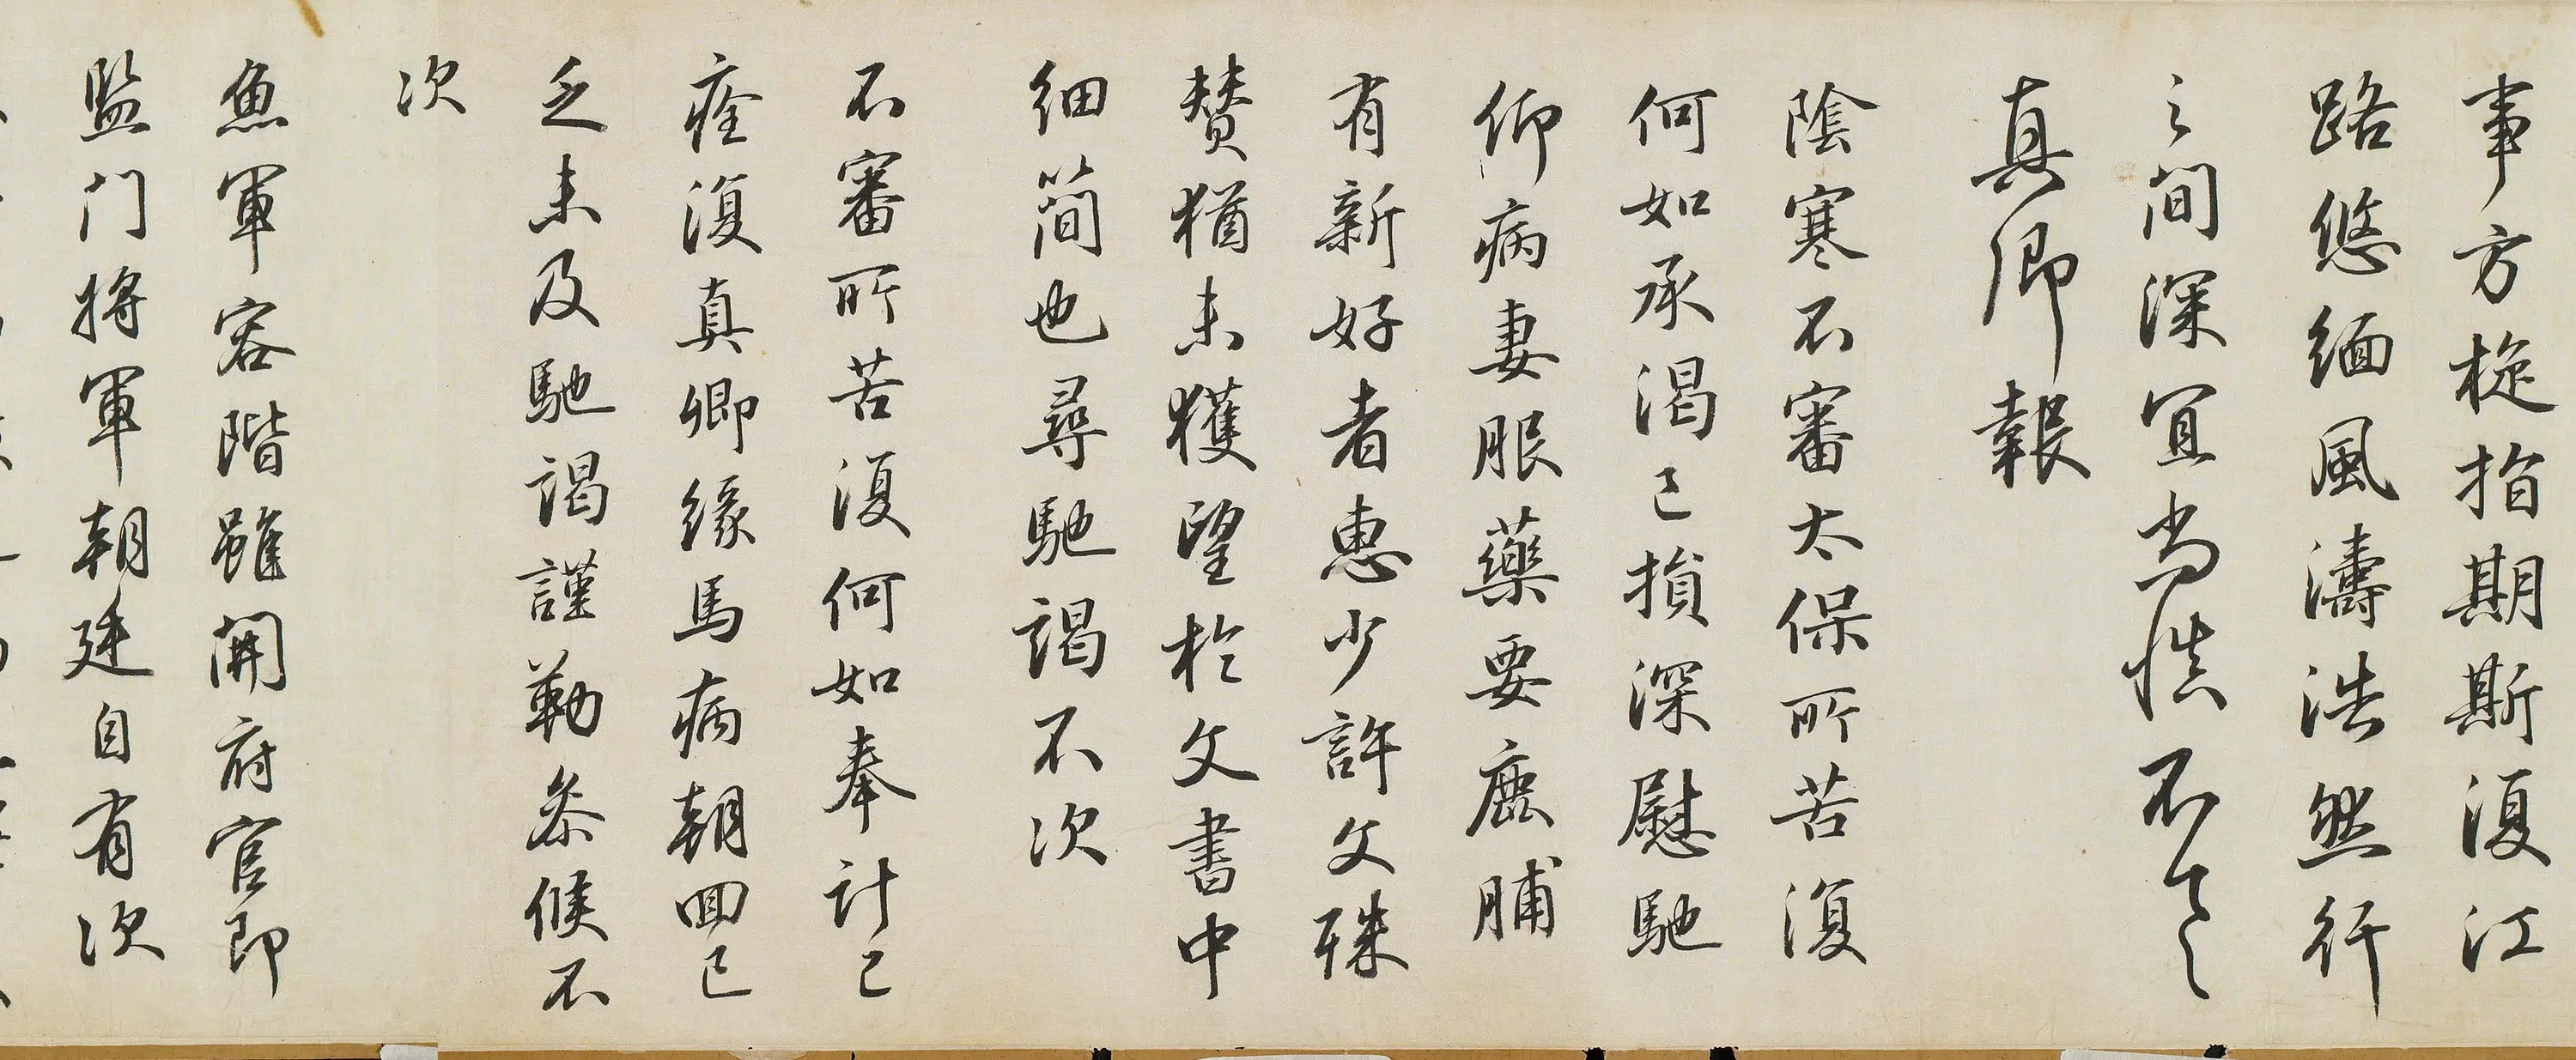 事方旋指期斯復江
路悠緬風濤浩然行
之間深宜尚慎不具
真卿報
陰寒不審太保所苦復
何如承渴已損深慰馳
仰病妻服藥要鹿脯
有新好者惠少許文殊
賛猶未獲望於文書中
細簡也尋馳謁不次
不審所苦復何如奉計已
痊復真卿緣馬病朝回已
乏未及馳謁謹勒參候不
次
魚軍容階雖開府官即
監门將軍朝廷自有次